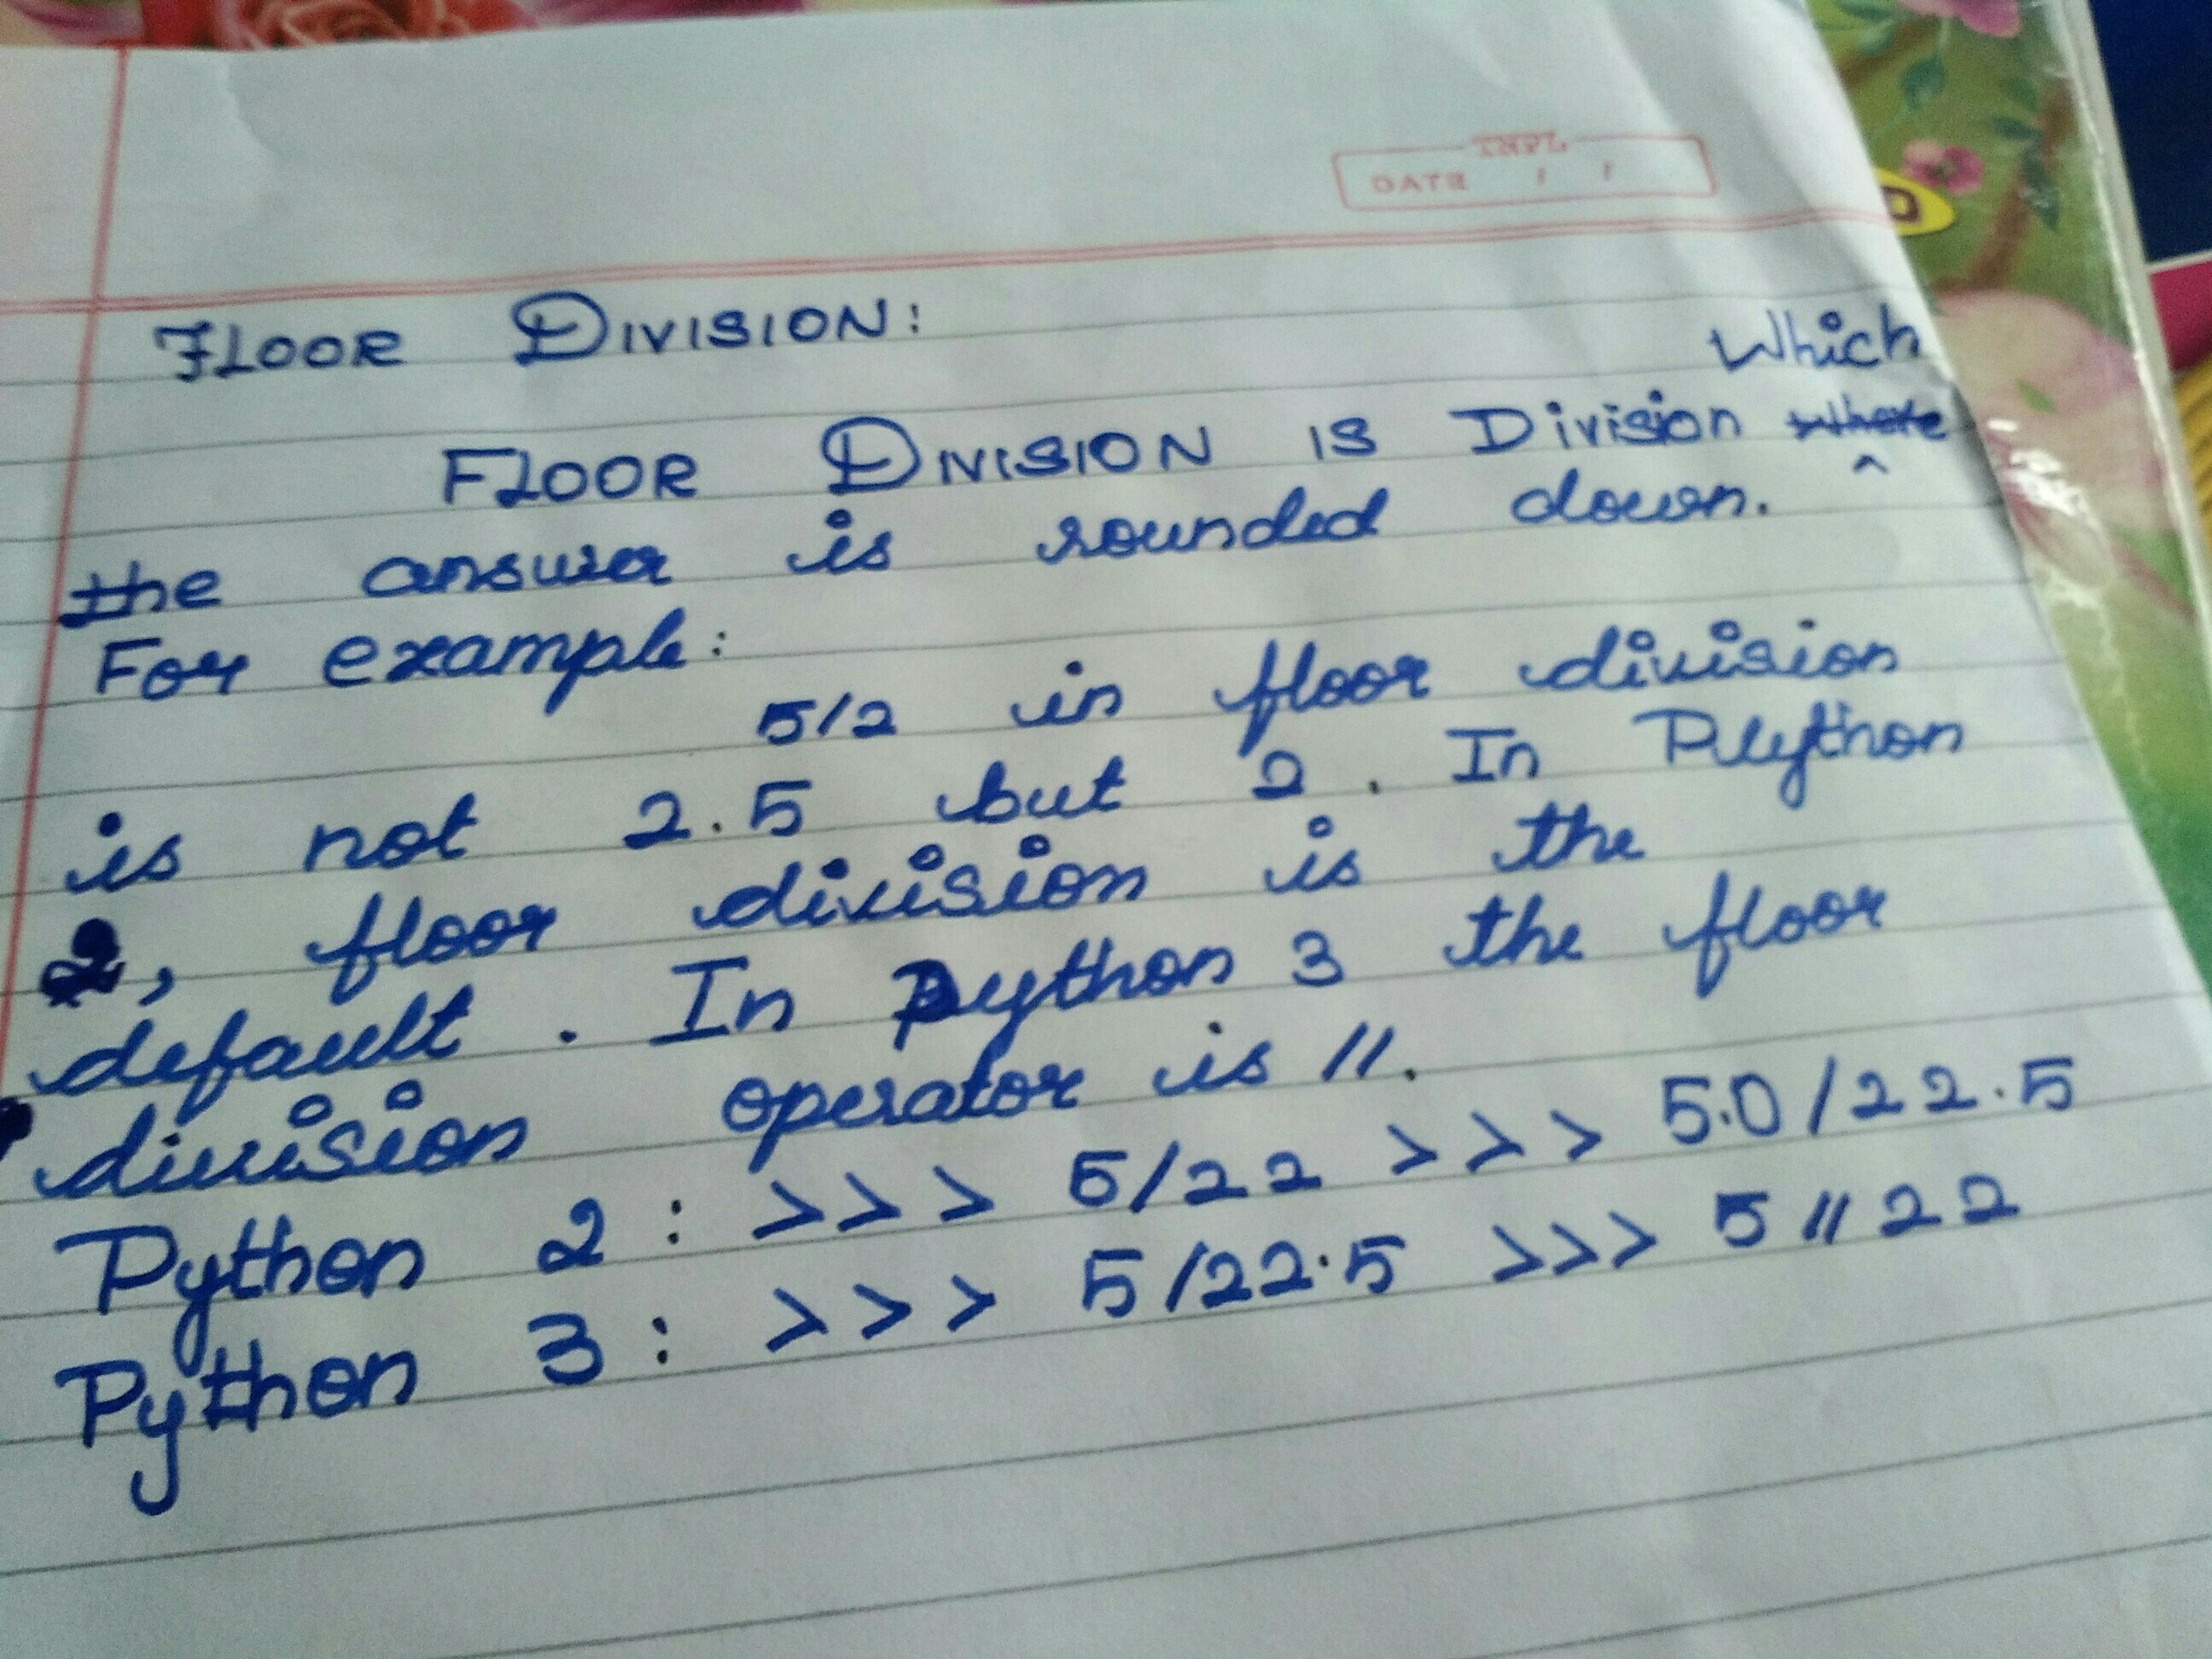 TNPL
DATE / /
FLOOR DIVISION:
Which
FLOOR DIVISION IS Division where ^
the answer is rounded down.
For example:
5/2 in floor division
is not 2.5 but 2. In Python
2, floor division is the
default. In Python 3 the floor
division operator is //.
Python 2: >>> 5/22 >>> 5.0/22.5
Python 3: >>> 5/22.5 >>> 5//22